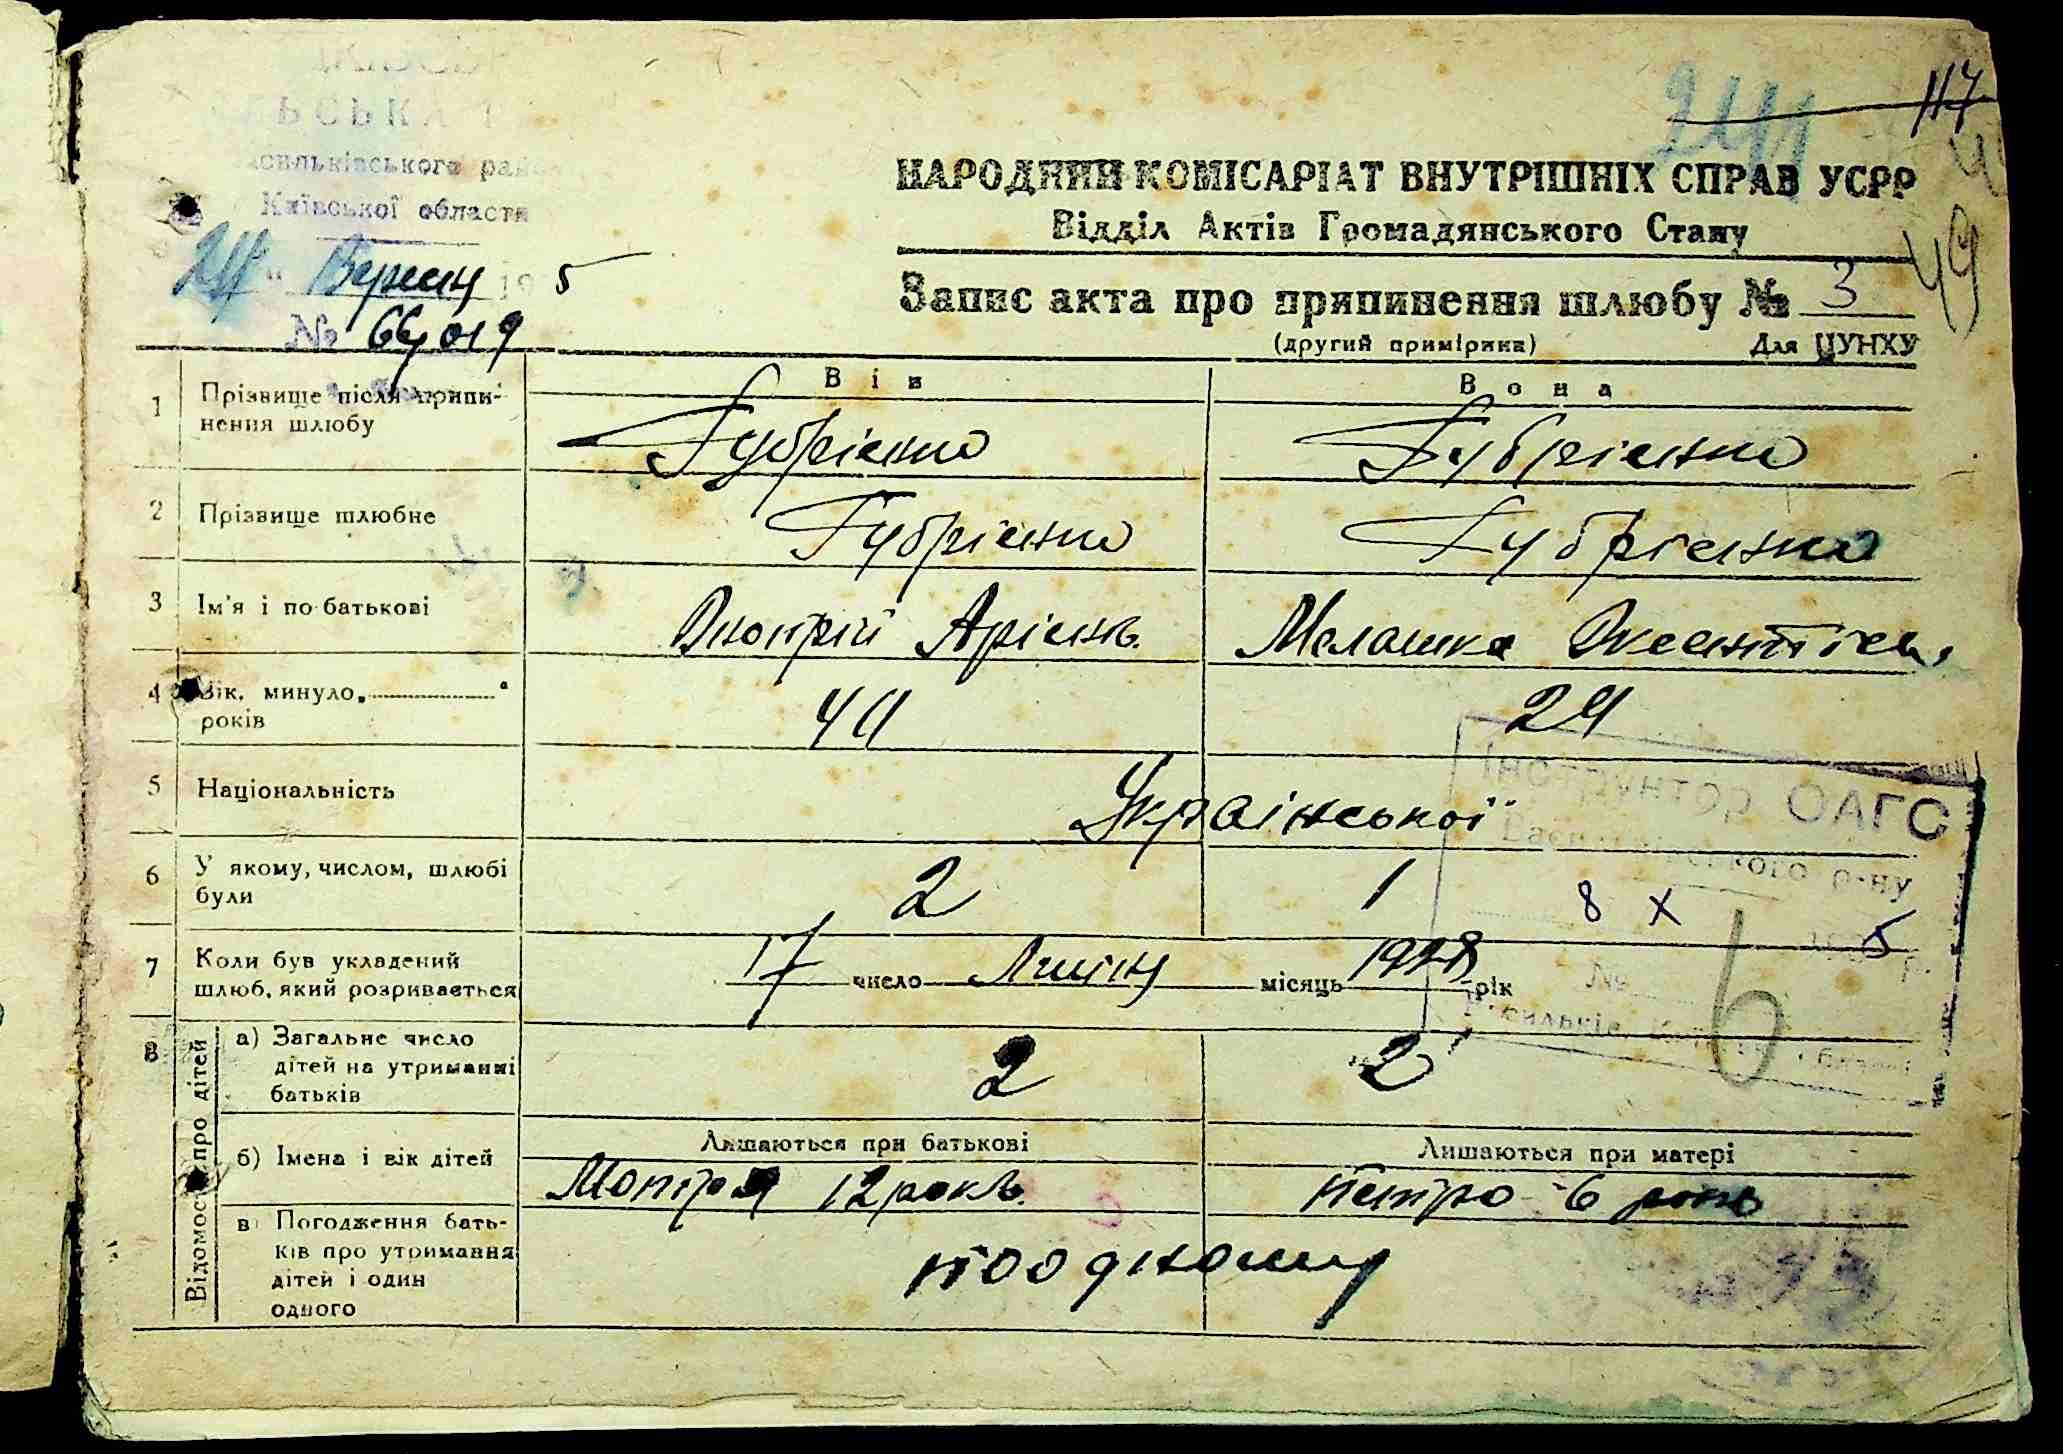 117
241
49
ЛЬСЬКА
Васильківського рай
Київської області
НАРОДНИЙ КОМІСАРІАТ ВНУТРІШНІХ СПРАВ УСРР
Відділ Актів Громадянського Стану
24 " Вересн 19 5
Запис акта про припинення шлюбу № 3
№
(другий примірник) Для ЦУНХУ
Він Вона
1 Прізвище після припи-
нення шлюбу Губрієнко Губрієнко
2 Прізвище шлюбне Губрієнко Губрієнко
3 Ім'я і по батькові Дмитрій Мелашка
4 Вік, минуло „ “
років 24
5 Національність Української
Інструктор ОАГС
Васильківського р-ну
6 У якому, числом, шлюбі
були 2 1
8 X 5
7 Коли був укладений
шлюб, який розривається 17 число Липня місяць 1928 рік
№
6
8 Відомості про дітей
а) Загальне число
дітей на утриманні
батьків 2 2
б) Імена і вік дітей Лишаються при батькові Лишаються при матері
Мотря 12 років Петро 6 років
в) Погодження бать-
ків про утримання
дітей і один
одного по одному